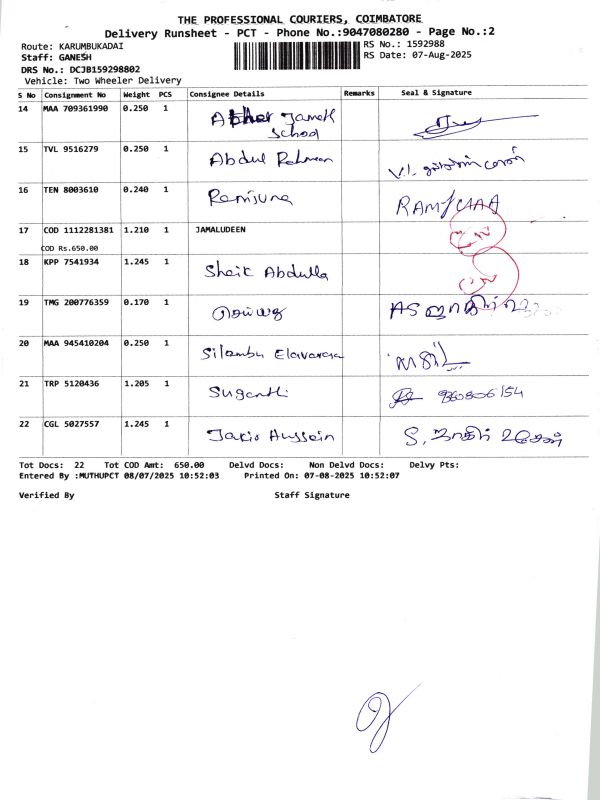 THE PROFESSIONAL COURIERS, COIMBATORE
Delivery Runsheet - PCT - Phone No.:9047080280 - Page No.:2
Route: KARUMBUKADAI
RS No.: 1592988
Staff: GANESH
RS Date: 07-Aug-2025
DRS No.: DCJB159298802
Vehicle: Two Wheeler Delivery
S No Consignment No Weight PCS Consignee Details Remarks Seal & Signature
14 MAA 709361990 0.250 1 School
15 TVL 9516279 0.250 1 Abdul Rahman
16 TEN 8003610 0.240 1 Ramjuna
17 COD 1112281381 1.210 1 JAMALUDEEN
COD Rs.650.00
18 KPP 7541934 1.245 1 Sheik Abdulla
19 TMG 200776359 0.170 1
20 MAA 945410204 0.250 1 Silambu
21 TRP 5120436 1.205 1 Suganthi
22 CGL 5027557 1.245 1 Hussain
Tot Docs: 22 Tot COD Amt: 650.00 Delvd Docs: Non Delvd Docs: Delvy Pts:
Entered By :MUTHUPCT 08/07/2025 10:52:03 Printed On: 07-08-2025 10:52:07
Verified By Staff Signature